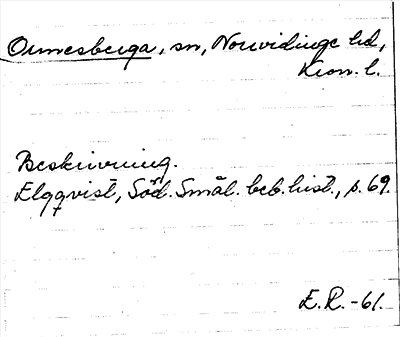 Ormesberga, sn, Norvidinge hd,
Kron. l.
Beskrivning.
Elgqvist, Söd. Smål. beb. hist., p. 69.
E.R. -61.